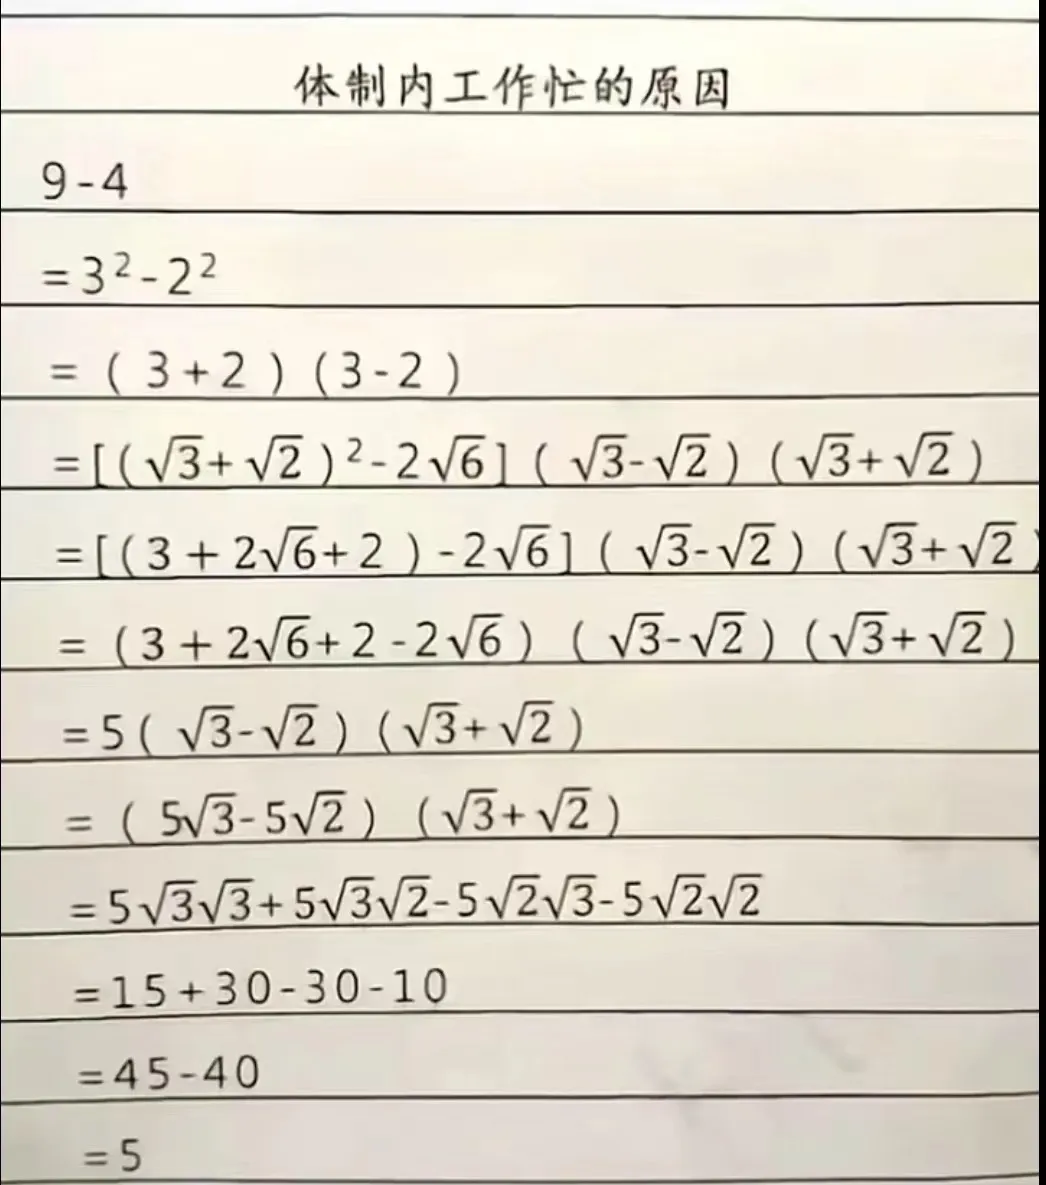 体制内工作忙的原因
9-4
=3²-2²
=(3+2)(3-2)
=[(√3+√2)²-2√6](√3-√2)(√3+√2)
=[(3+2√6+2)-2√6](√3-√2)(√3+√2)
=(3+2√6+2-2√6)(√3-√2)(√3+√2)
=5(√3-√2)(√3+√2)
=(5√3-5√2)(√3+√2)
=5√3√3+5√3√2-5√2√3-5√2√2
=15+30-30-10
=45-40
=5